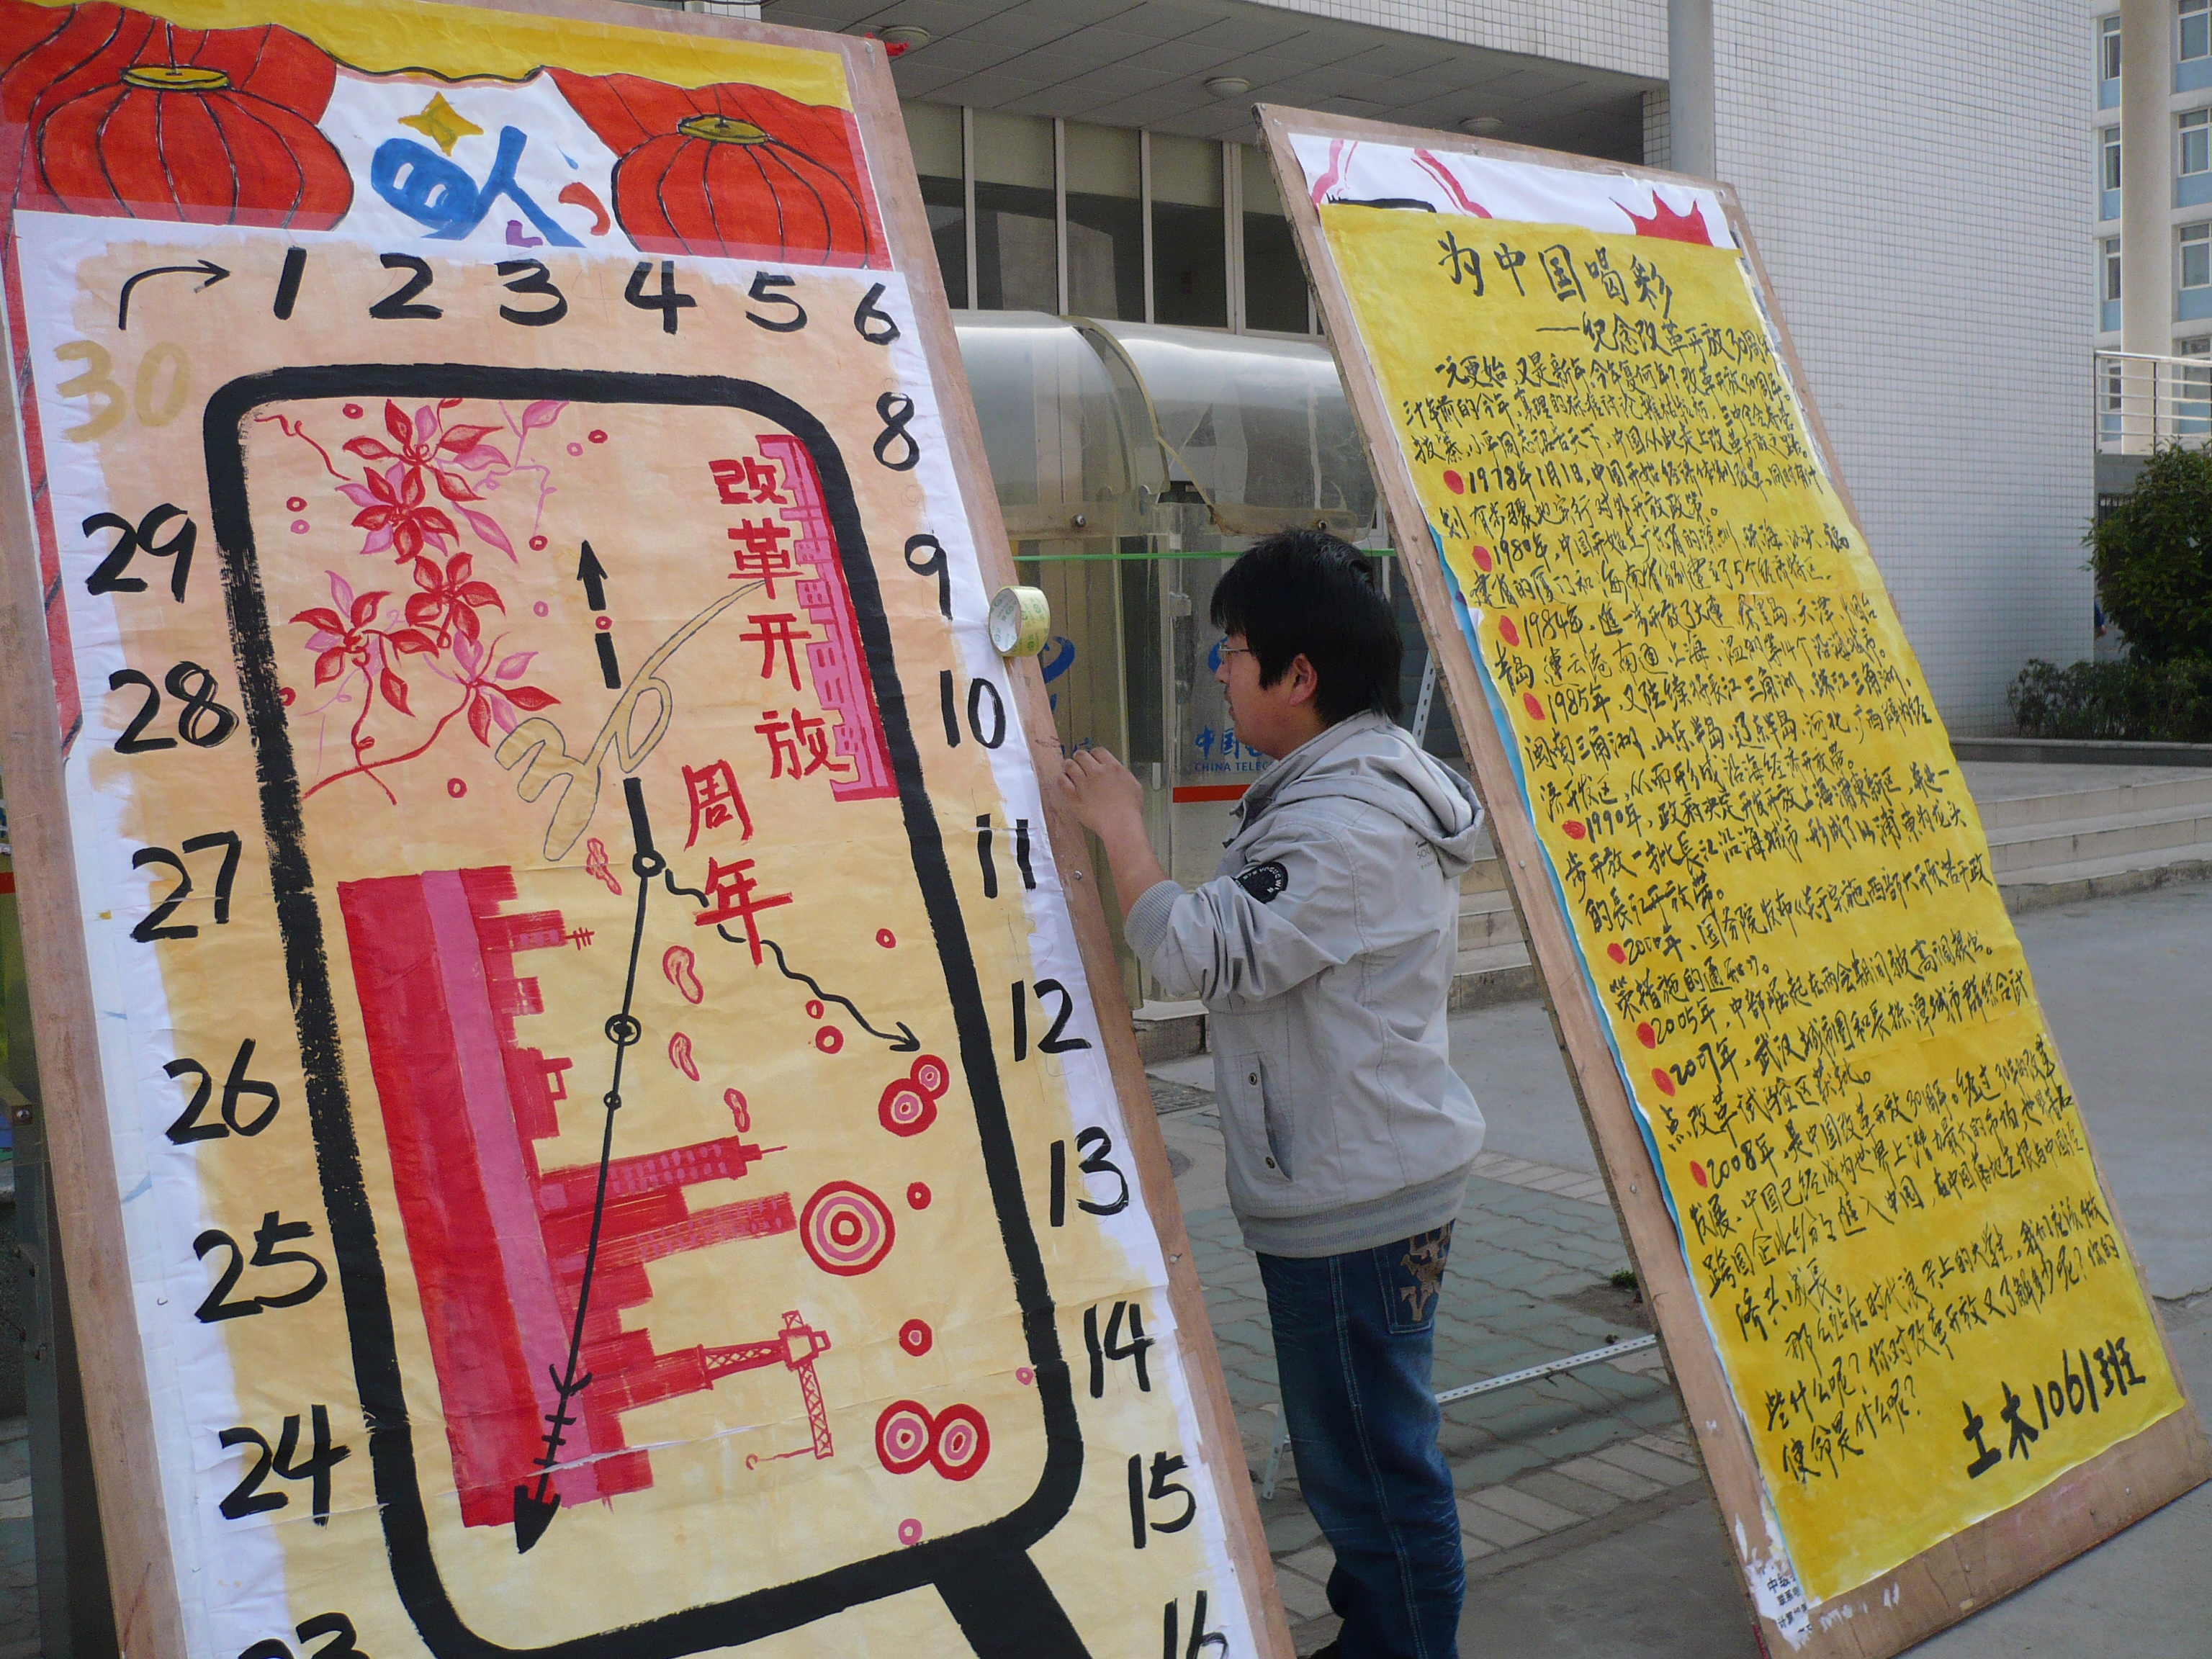 1 2 3 4 5 6
30
8
29
9
28
10
27
11
26
12
25
13
24
14
15
16
23
30
改革开放
周年
中国
CHINA TELE
为中国喝彩
——纪念改革开放30周年
一元更始,又是新年,今年复何年?改革开放30周年。
三十年前的今年,真理的标准讨论
拔寨,小平同志语告天下,中国从此走上改革开放之路。
1978年1月1日,中国开始经济体制改革,同时有计
划有步骤地实行对外开放政策。
1980年,中国开始在广东省的深圳、珠海、汕头、福
建省的厦门和海南省分别建立了5个经济特区。
1984年,進一步开放了大連、秦皇岛、天津、烟台
青岛、連云港、南通、上海、温州等14个沿海城市。
1985年,又陆续将長江三角洲、珠江三角洲、
闽南三角洲、山东半岛、辽东半岛、河北、广西辟为经
济开放区,从而形成沿海经济开放带。
1990年,政府决定开发开放上海浦東新区,并進一
步开放一批長江沿海城市,形成了以浦東为龙头
的長江开放带。
2000年,国务院发布《关于实施西部大开发若干政
策措施的通知》。
2005年,中部崛起在两会期间被高调提出。
2007年,武汉城市圈和長株潭城市群综合试
点改革试验区获批。
2008年,是中国改革开放30周年。经过30年的改革
发展,中国已经成为世界上潜力最大的市场,
跨国企业纷纷進入中国,在中国落地生根与中国经
济共成長。
那么站在时代浪尖上的大学生,我们应该做
些什么呢?你对改革开放又了解多少呢?你的
使命是什么呢?
土木1061班